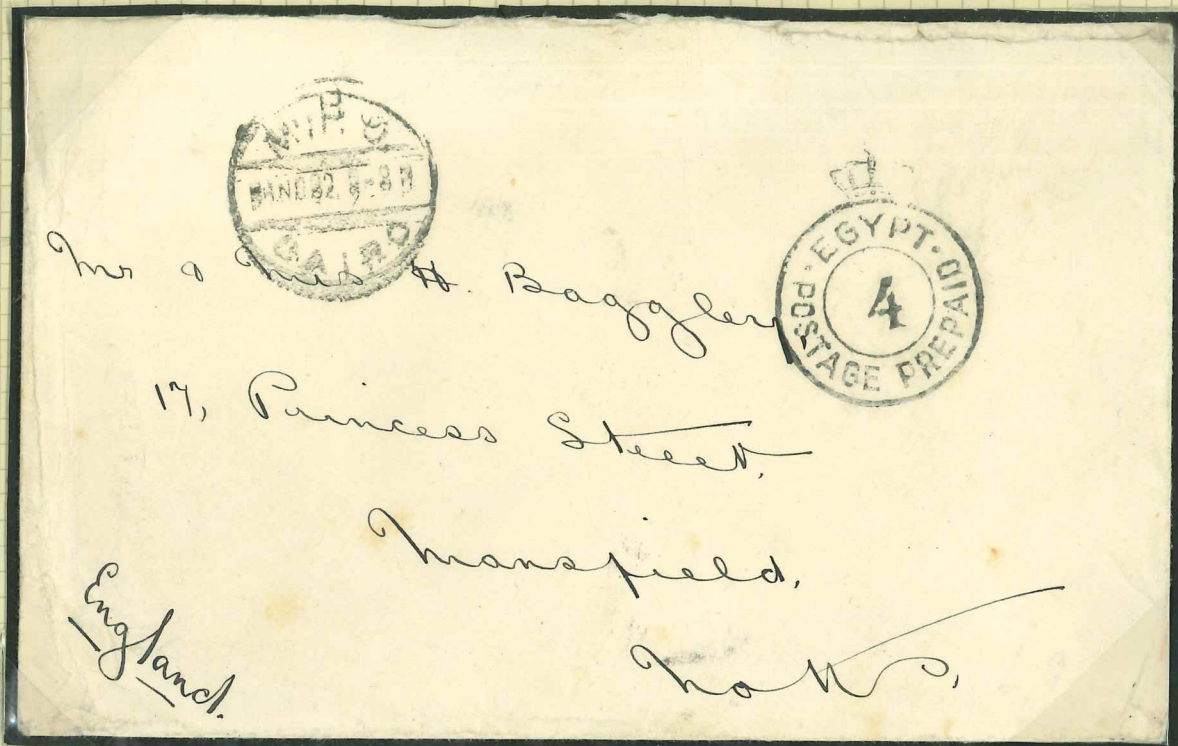 M.P.O
CAIRO
EGYPT
POSTAGE PREPAID
4
Mr & Mrs H. Baggley
17, Princess Street.
Mansfield.
Notts,
England.